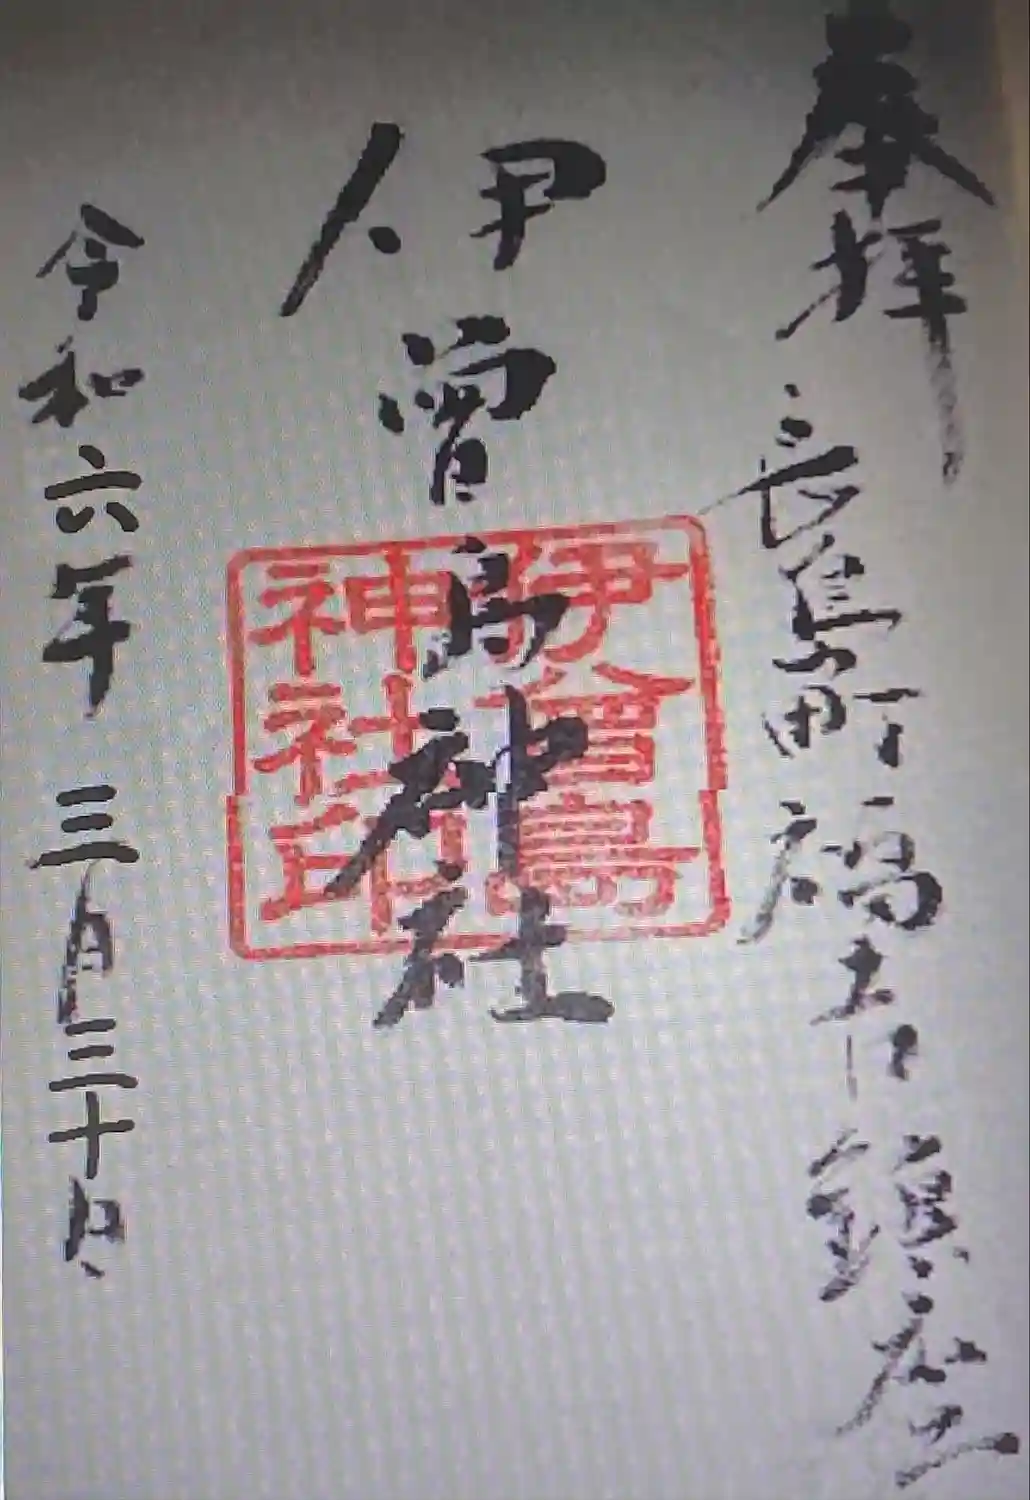 奉拝
長島町福吉
鎮座
伊曽島神社
伊曾島
神社印
令和六年 三月三十日